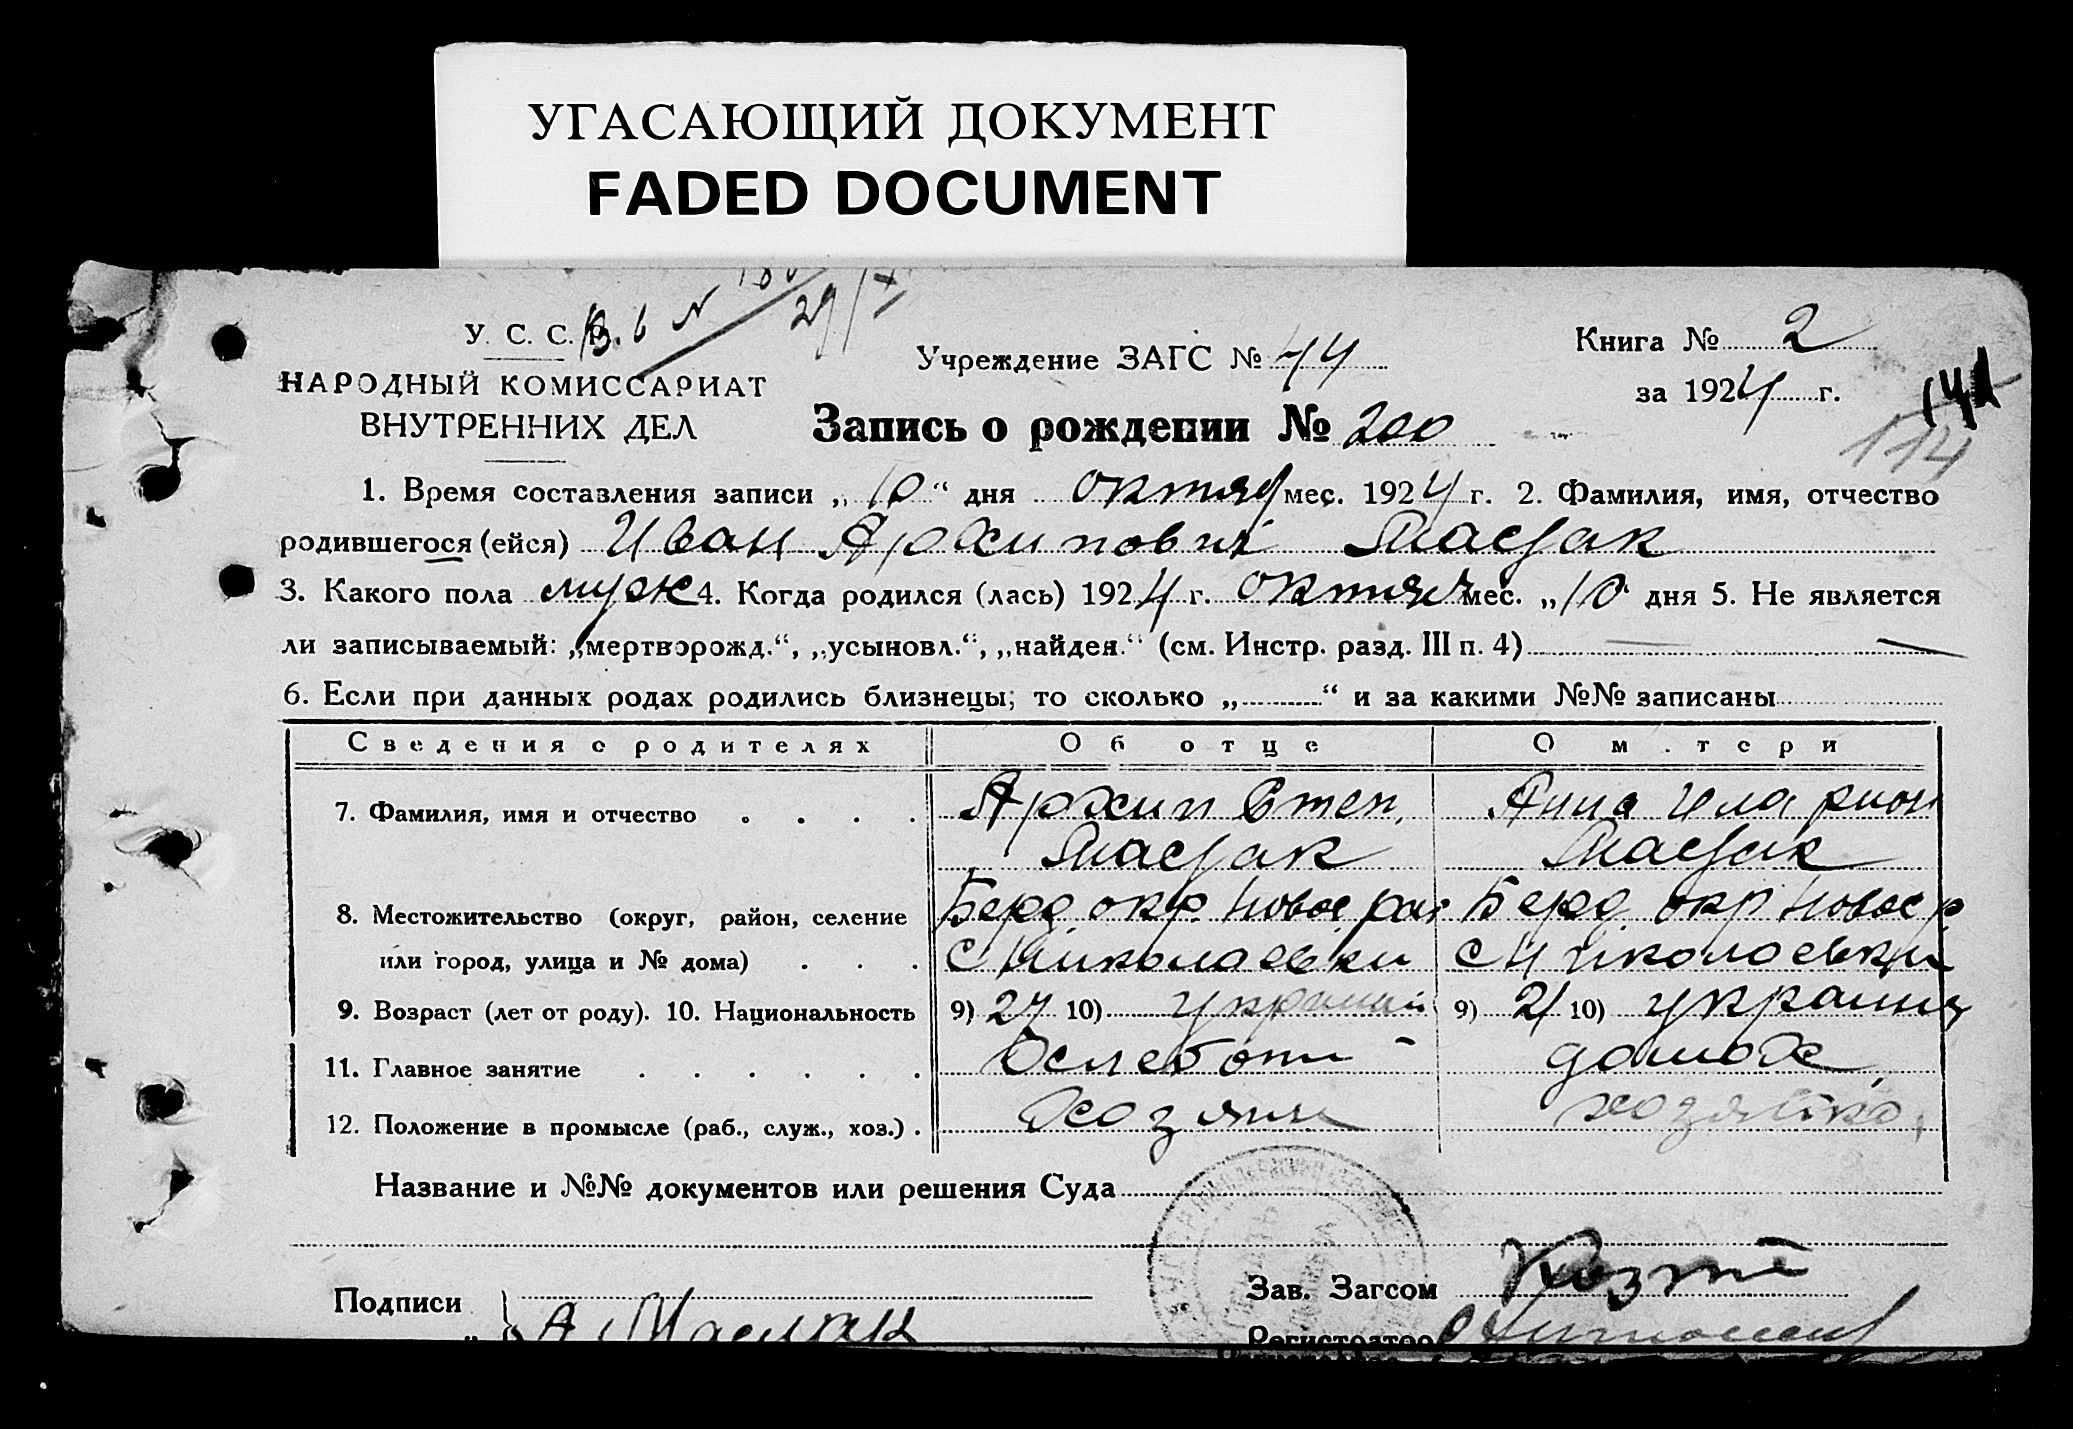 УГАСАЮЩИЙ ДОКУМЕНТ
FADED DOCUMENT
29/X
У. С. С. Р.
НАРОДНЫЙ КОМИССАРИАТ
ВНУТРЕННИХ ДЕЛ
Учреждение ЗАГС № 44
Книга № 2
за 1924 г.
141
114
Запись о рождении № 200
1. Время составления записи „10“ дня октяб мес. 1924 г. 2. Фамилия, имя, отчество
родившегося (ейся) Иван Архипович
3. Какого пола муж 4. Когда родился (лась) 1924 г. октяб мес. „10“ дня 5. Не является
ли записываемый: „мертворожд.“, „усыновл.“, „найден.“ (см. Инстр. разд. III п. 4) —
6. Если при данных родах родились близнецы; то сколько „ “ и за какими №№ записаны
Сведения о родителях Об отце О м.тери
7. Фамилия, имя и отчество Архип Степ. Анна Иларион
8. Местожительство (округ, район, селение Берд окр. Новос рай Берд окр Новос р
или город, улица и № дома) с Николаевки с Николаевки
9. Возраст (лет от роду). 10. Национальность 9) 27 10) украин 9) 21 10) украин
11. Главное занятие домох.
12. Положение в промысле (раб., служ., хоз.) . хозяин хозяйка
Название и №№ документов или решения Суда
Подписи
Зав. Загсом
Регистратор